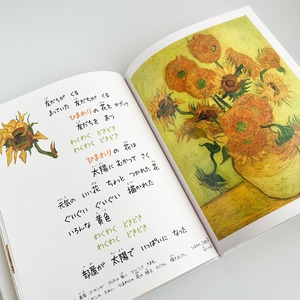 友だちが くる
まっていた 友だちが くる
ひまわりの 花を かざって
友だちを まつ
わくわく どきどき
わくわく どきどき
ひまわりの 花は
太陽に むかって さく
元気の いい花 ちょっと つかれた 花
ぐいぐい ぐいぐい 描かれた
いろんな 黄色
わくわく どきどき
わくわく どきどき
部屋が 太陽で いっぱいに なった